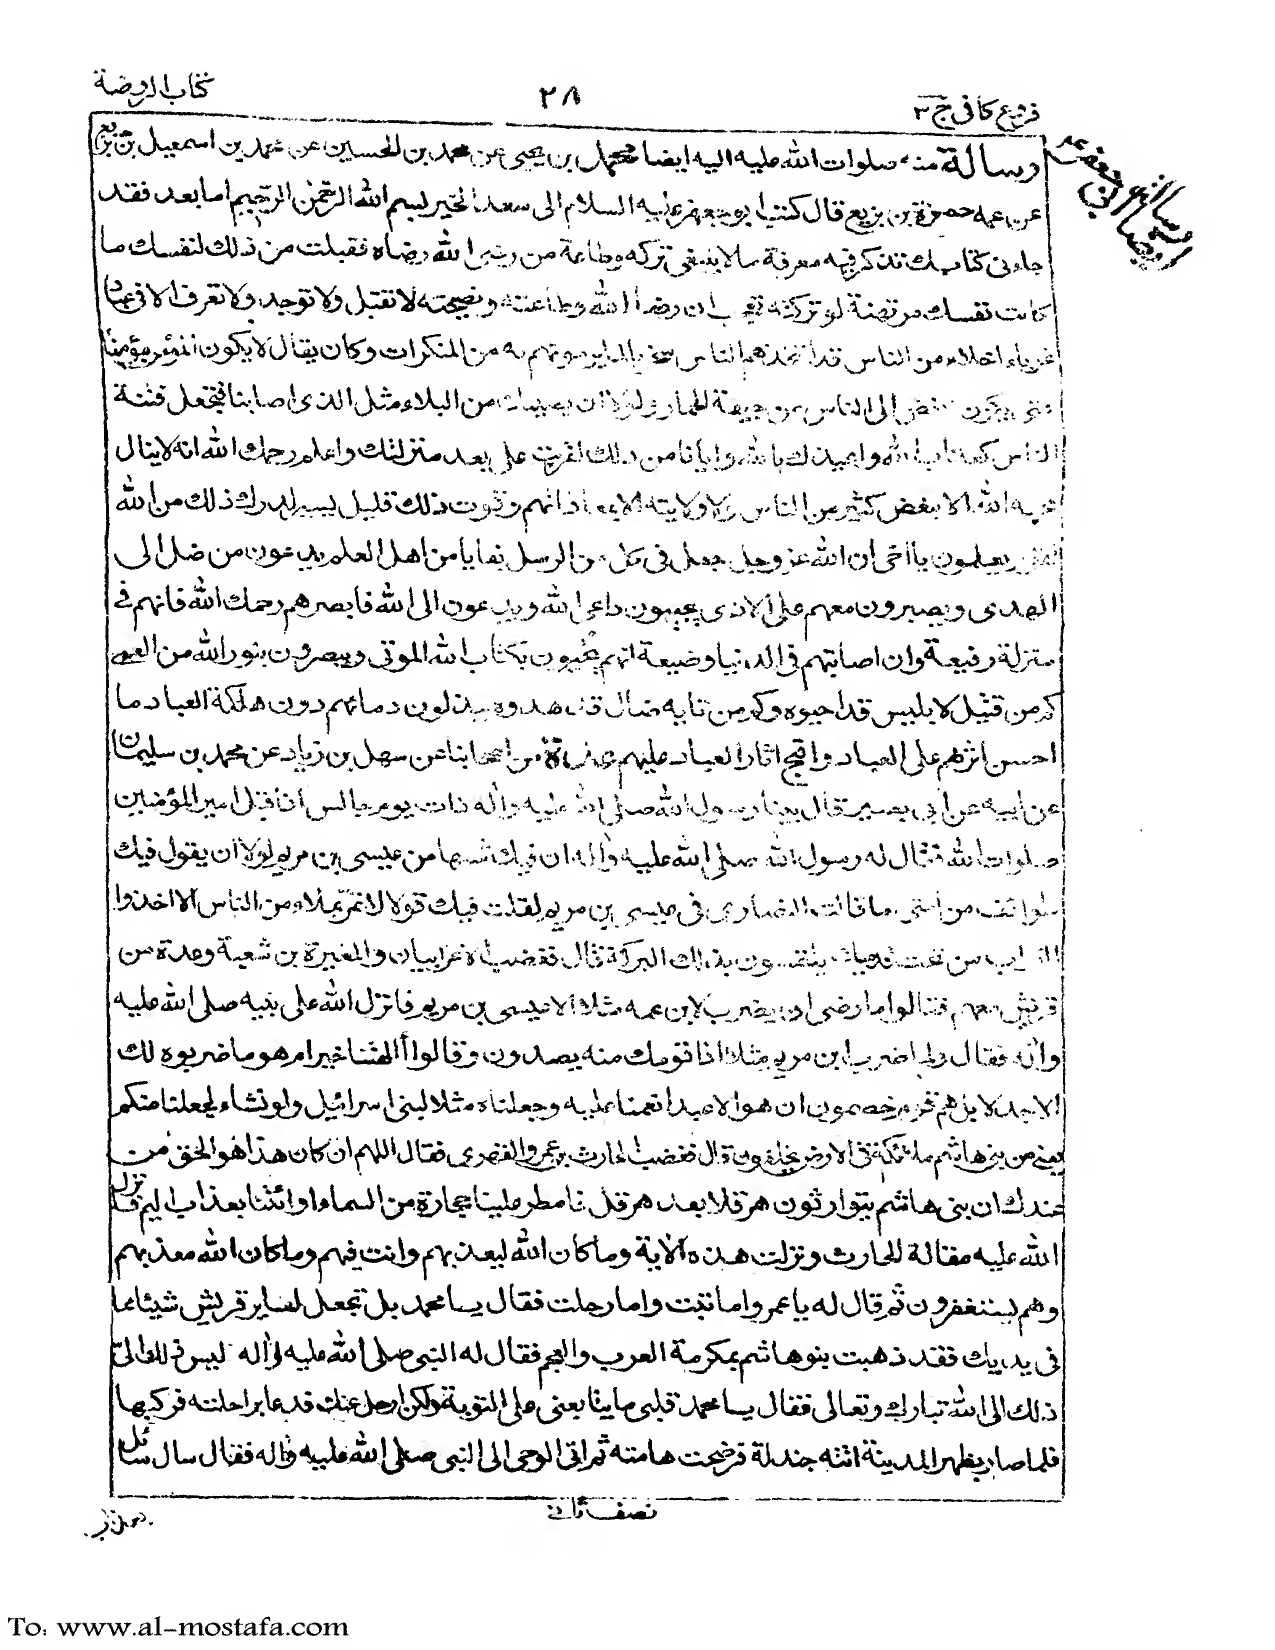 كتاب الروضة
٢٨
فروع كافى ج ٣
رسالة منه صلوات الله عليه اليه ايضا محمد بن يحيى عن محمد بن الحسين عن محمد بن اسمعيل بن بزيع
عن عمه حمزة بن بزيع قال كتب ابو جعفر عليه السلام الى سعد الخير بسم الله الرحمن الرحيم اما بعد فقد
جاءنى كتابك تذكر فيه معرفة ما لا ينبغى تركه وطاعة من رضى الله رضاه فقبلت من ذلك لنفسك ما
كانت نفسك مرتهنة لو تركته تعجب ان رضا الله وطاعته ونصيحته لا تقبل ولا توجد ولا تعرف الا فى عباد
غرباء اخلاء من الناس قد اتخذهم الناس سخريا لما يرمونهم به من المنكرات وكان يقال لا يكون المؤمن مؤمنا
حتى يكون ابغض الى الناس من جيفة الحمار ولولا ان يصيبك من البلاء مثل الذى اصابنا فتجعل فتنة
الناس كعذاب الله واعيذك بالله وايانا من ذلك لقربت على بعد منزلتك واعلم رحمك الله انه لا ينال
محبة الله الا ببغض كثير من الناس ولا ولايته الا بمعاداتهم وفوت ذلك قليل يسير لدرك ذلك من الله
لقوم يعلمون يا اخى ان الله عز وجل جعل فى كل من الرسل بقايا من اهل العلم يدعون من ضل الى
الهدى ويصبرون معهم على الاذى يجيبون داعى الله ويدعون الى الله فابصرهم رحمك الله فانهم فى
منزلة رفيعة وان اصابتهم فى الدنيا وضيعة انهم يحيون بكتاب الله الموتى ويبصرون بنور الله من العمى
كم من قتيل لابليس قد احيوه وكم من تايه ضال قد هدوه يبذلون دمائهم دون هلكة العباد ما
احسن اثرهم على العباد واقبح اثار العباد عليهم عدة من اصحابنا عن سهل بن زياد عن محمد بن سليمان
عن ابيه عن ابى بصير قال بينا رسول الله صلى الله عليه واله ذات يوم جالس اذ اقبل امير المؤمنين
صلوات الله فقال له رسول الله صلى الله عليه واله ان فيك شبها من عيسى بن مريم لولا ان يقول فيك
طوائف من امتى ما قالت النصارى فى عيسى بن مريم لقلت فيك قولا لا تمر بملاء من الناس الا اخذوا
التراب من تحت قدميك يلتمسون بذلك البركة قال فغضب الاعرابيان والمغيرة بن شعبة وعدة من
قريش معهم فقالوا ما رضى ان يضرب لابن عمه مثلا الا عيسى بن مريم فانزل الله على نبيه صلى الله عليه
واله فقال ولما ضرب ابن مريم مثلا اذا قومك منه يصدون وقالوا أالهتنا خير ام هو ما ضربوه لك
الا جدلا بل هم قوم خصمون ان هو الا عبد انعمنا عليه وجعلناه مثلا لبنى اسرائيل ولو نشاء لجعلنا منكم
يعنى من بنى هاشم ملائكة فى الارض يخلفون قال فغضب الحارث بن عمرو الفهرى فقال اللهم ان كان هذا هو الحق من
عندك ان بنى هاشم يتوارثون هرقلا بعد هرقل فامطر علينا حجارة من السماء او ائتنا بعذاب اليم فانزل
الله عليه مقالة الحارث ونزلت هذه الاية وما كان الله ليعذبهم وانت فيهم وما كان الله معذبهم
وهم يستغفرون ثم قال له يا عمرو اما تبت واما رحلت فقال يا محمد بل تجعل لساير قريش شيئا مما
فى يديك فقد ذهبت بنو هاشم بمكرمة العرب والعجم فقال له النبى صلى الله عليه واله ليس ذلك الى
ذلك الى الله تبارك وتعالى فقال يا محمد قلبى ما يتابعنى على التوبة ولكن ارحل عنك فدعا براحلته فركبها
فلما صار بظهر المدينة اتته جندلة فرضخت هامته ثم اتى الوحى الى النبى صلى الله عليه واله فقال سال سائل
بعذاب
نصف ثانى
To: www.al-mostafa.com